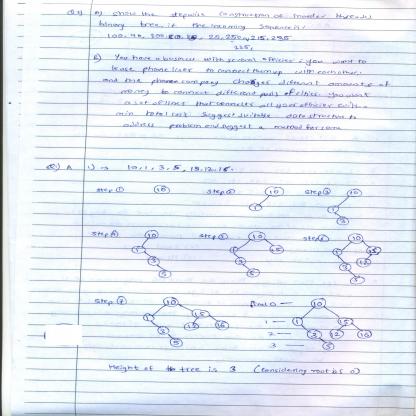 a) Show the stepwise construction of
binary tree, if the incoming sequence is
100, 90, 200, 20, 250, 215, 295
225,
b) You have a business with several offices; you want to
lease phone lines to connect them up with each other;
and the phone company charges different amounts of
money to connect different pairs of cities. You want
a set of lines that connects all your offices with a
min total cost. Suggest suitable data structure to
address problem and suggest a method for same
A i) → 10, 1, 3, 5, 15, 12, 16.
Step ① Step ② Step ③
10 10 10
1 1
3
Step ④ Step ⑤ Step ⑥
10 10 10
1 1 15 1 15
3 3 3 12
5 5 5
Step ⑦
10 0 — 10
1 15 1 — 1 15
3 12 16 2 — 3 12 16
5 3 — 5
Height of the tree is 3 (considering root as 0)